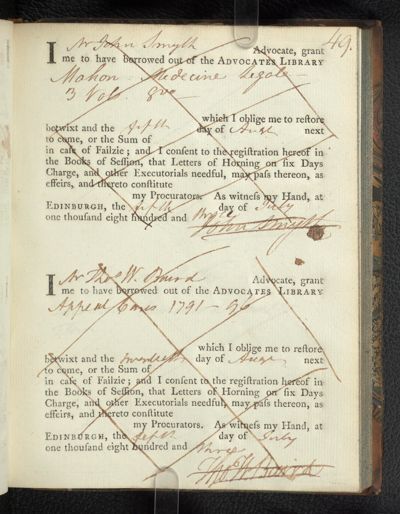 49.
I Mr John Smyth Advocate, grant
me to have borrowed out of the ADVOCATES LIBRARY
Mahon Medecine Legale
3 Vols 8vo
which I oblige me to reſtore
betwixt and the fifth day of Augt next
to come, or the Sum of
in caſe of Failzie; and I conſent to the regiſtration hereof in
the Books of Seſſion, that Letters of Horning on ſix Days
Charge, and other Executorials needful, may paſs thereon, as
effeirs, and thereto conſtitute
my Procurators. As witneſs my Hand, at
EDINBURGH, the fifth day of July
one thouſand eight hundred and
John Smyth
I Mr Thos W. Baird Advocate, grant
me to have borrowed out of the ADVOCATES LIBRARY
Appeal Cases 1791-96
which I oblige me to reſtore
betwixt and the day of Augt next
to come, or the Sum of
in caſe of Failzie; and I conſent to the regiſtration hereof in
the Books of Seſſion, that Letters of Horning on ſix Days
Charge, and other Executorials needful, may paſs thereon, as
effeirs, and thereto conſtitute
my Procurators. As witneſs my Hand, at
EDINBURGH, the fifth day of July
one thouſand eight hundred and three
Tho W Baird